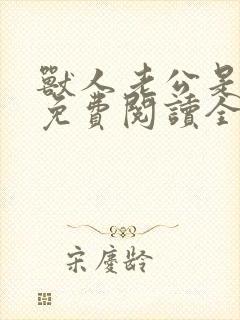 獸人老公是
免費閱讀全
宋慶齡